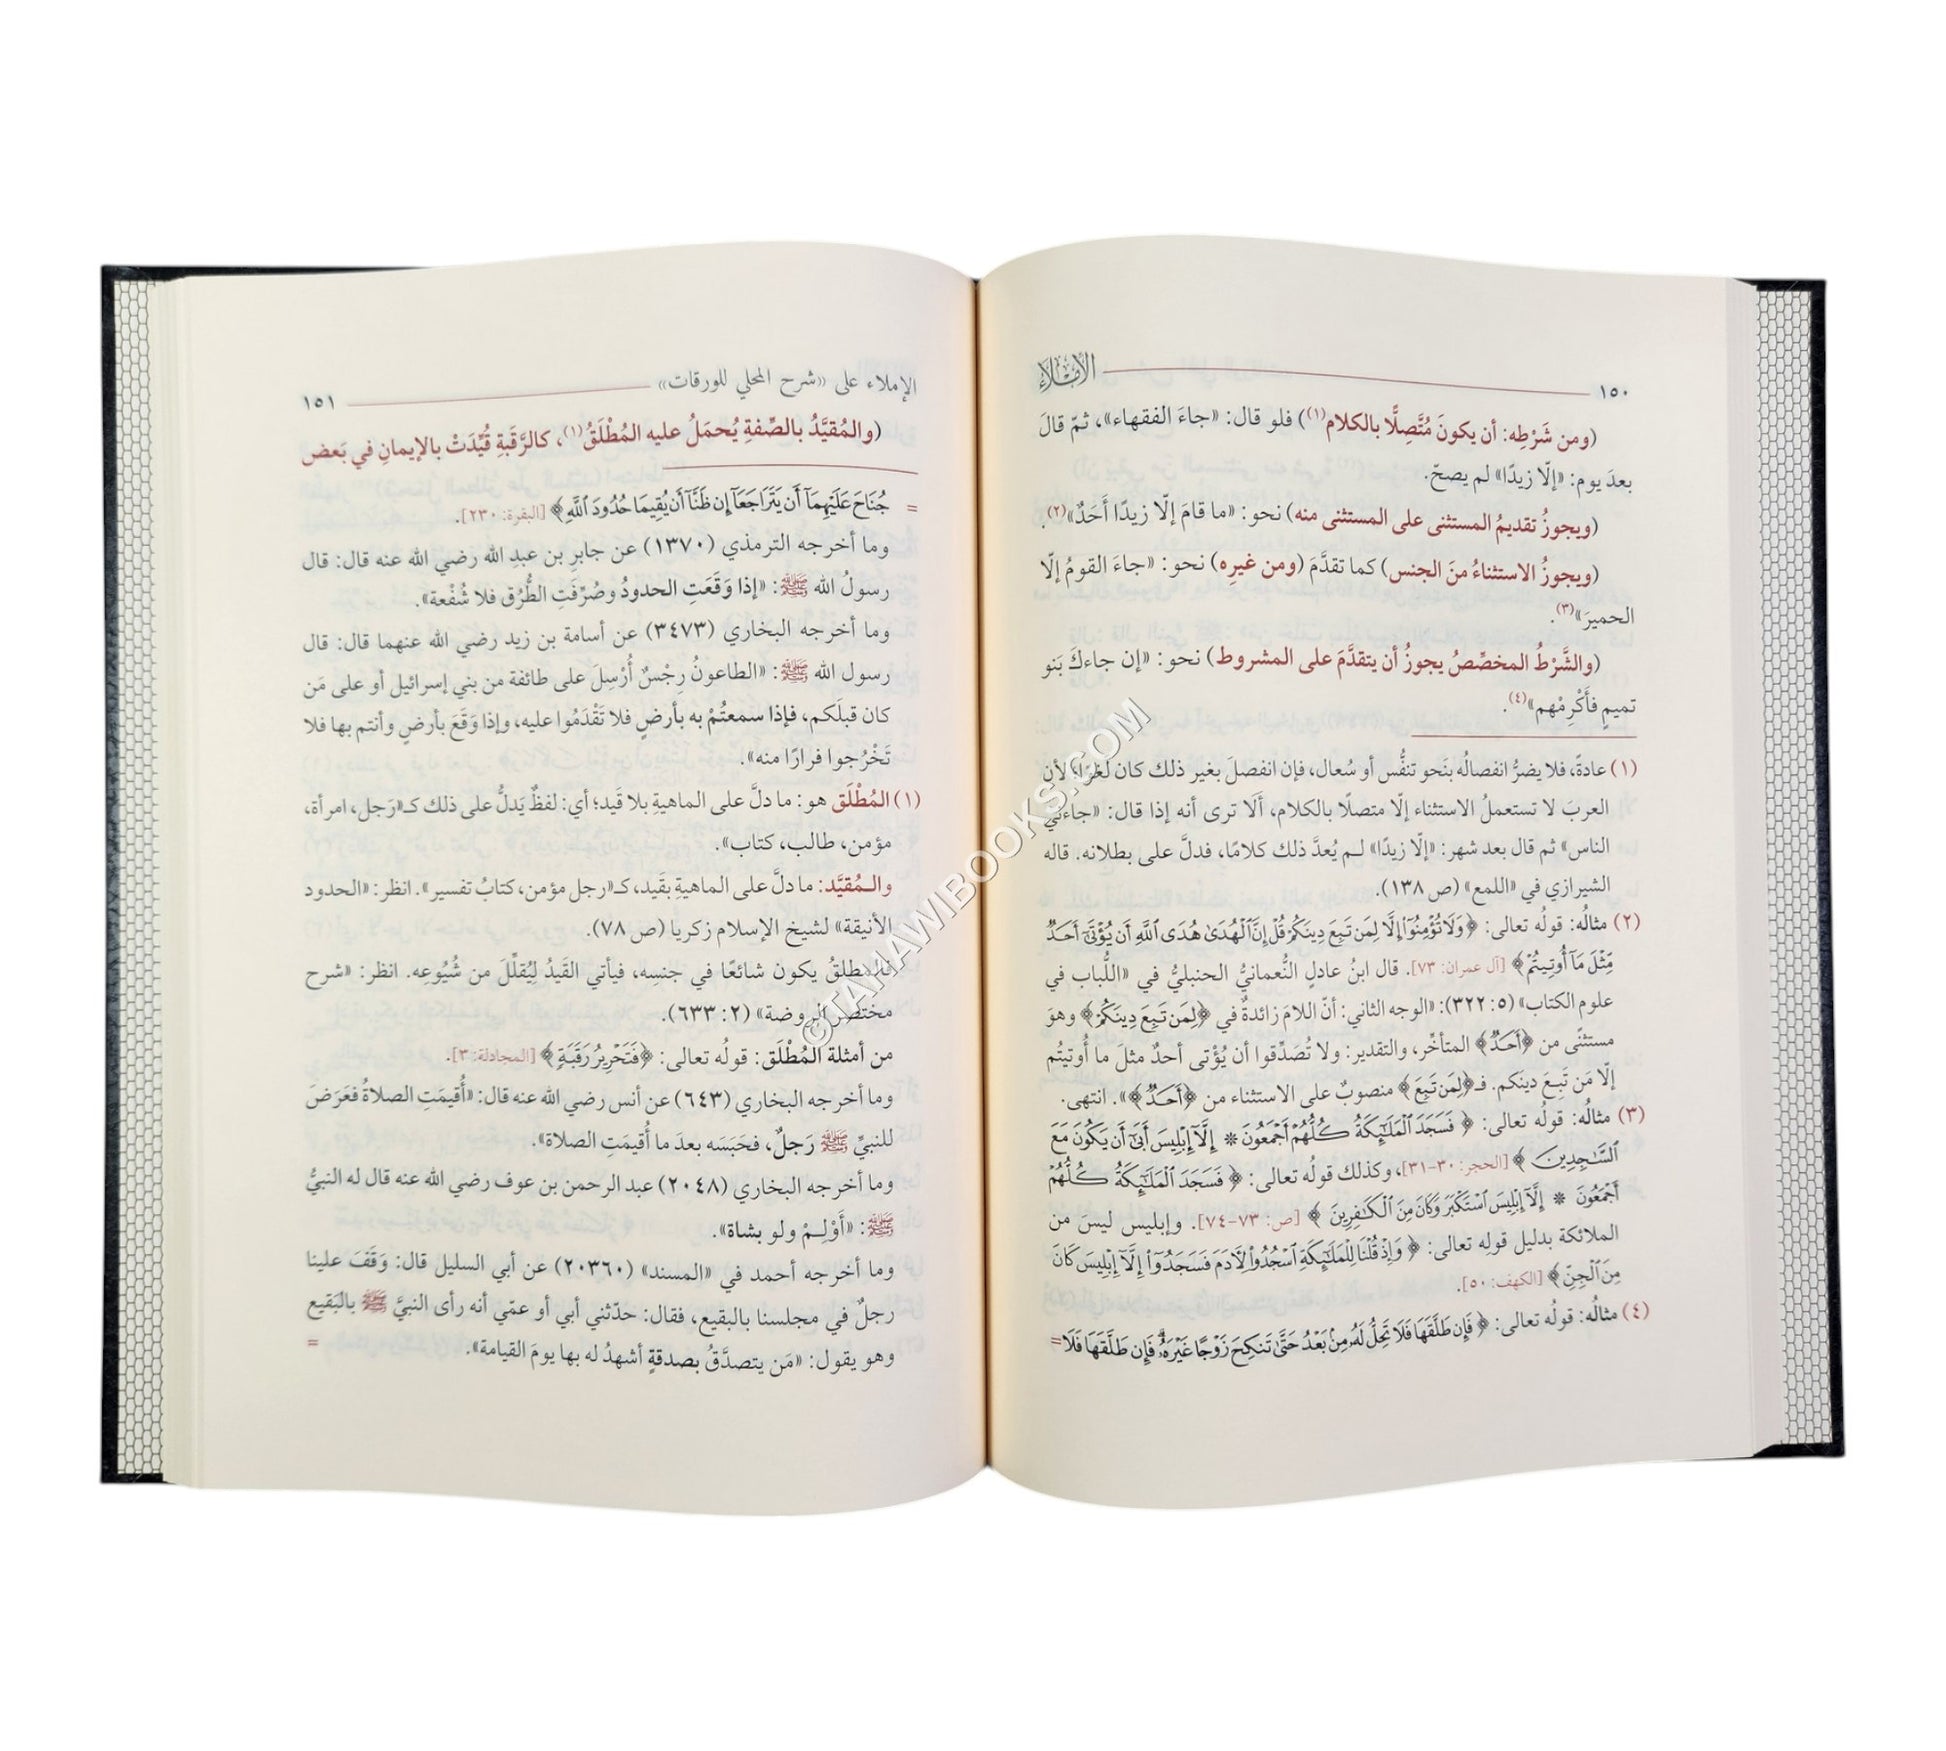 ١٥٠
الإملاء
(ومن شَرْطِه: أن يكونَ مُتَّصِلًا بالكلام(١)) فلو قال: «جاءَ الفقهاء»، ثمّ قالَ
بعدَ يوم: «إلّا زيدًا» لم يصحّ.
(ويجوزُ تقديمُ المستثنى على المستثنى منه) نحو: «ما قامَ إلّا زيدًا أَحَدٌ»(٢).
(ويجوزُ الاستثناءُ منَ الجنس) كما تقدَّمَ (ومن غيرِه) نحو: «جاءَ القومُ إلّا
الحميرَ»(٣).
(والشَّرْطُ المخصِّصُ يجوزُ أن يتقدَّمَ على المشروط) نحو: «إن جاءكَ بَنو
تميمٍ فأَكْرِمْهم»(٤).
(١) عادةً، فلا يضرُّ انفصالُه بنَحو تنفُّس أو سُعال، فإن انفصلَ بغير ذلك كان لغوًا؛ لأن
العربَ لا تستعملُ الاستثناء إلّا متصلًا بالكلام، ألَا ترى أنه إذا قال: «جاءني
الناس» ثم قال بعد شهر: «إلّا زيدًا» لـم يُعدَّ ذلك كلامًا، فدلَّ على بطلانه. قاله
الشيرازي في «اللمع» (ص ١٣٨).
(٢) مثالُه: قولُه تعالى: ﴿وَلَا تُؤْمِنُوٓا۟ إِلَّا لِمَن تَبِعَ دِينَكُمْ قُلْ إِنَّ ٱلْهُدَىٰ هُدَى ٱللَّهِ أَن يُؤْتَىٰٓ أَحَدٌ
مِّثْلَ مَآ أُوتِيتُمْ﴾ [آل عمران: ٧٣]. قال ابنُ عادلٍ النُّعمانيُّ الحنبليُّ في «اللُّباب في
علوم الكتاب» (٥: ٣٢٢): «الوجه الثاني: أنّ اللامَ زائدةٌ في ﴿لِمَن تَبِعَ دِينَكُمْ﴾ وهوَ
مستثنًى من ﴿أَحَدٌ﴾ المتأخِّر، والتقدير: ولا تُصَدِّقوا أن يُؤْتى أحدٌ مثلَ ما أُوتيتُم
إلّا مَن تَبِعَ دينَكم. فـ﴿لِمَن تَبِعَ﴾ منصوبٌ على الاستثناء من ﴿أَحَدٌ﴾». انتهى.
(٣) مثالُه: قولُه تعالى: ﴿فَسَجَدَ ٱلْمَلَٰٓئِكَةُ كُلُّهُمْ أَجْمَعُونَ * إِلَّآ إِبْلِيسَ أَبَىٰٓ أَن يَكُونَ مَعَ
ٱلسَّٰجِدِينَ﴾ [الحجر: ٣٠-٣١]، وكذلك قولُه تعالى: ﴿فَسَجَدَ ٱلْمَلَٰٓئِكَةُ كُلُّهُمْ
أَجْمَعُونَ * إِلَّآ إِبْلِيسَ ٱسْتَكْبَرَ وَكَانَ مِنَ ٱلْكَٰفِرِينَ﴾ [ص: ٧٣-٧٤]. وإبليس ليسَ من
الملائكة بدليل قولِه تعالى: ﴿وَإِذْ قُلْنَا لِلْمَلَٰٓئِكَةِ ٱسْجُدُوا۟ لِءَادَمَ فَسَجَدُوٓا۟ إِلَّآ إِبْلِيسَ كَانَ
مِنَ ٱلْجِنِّ﴾ [الكهف: ٥٠].
(٤) مثالُه: قولُه تعالى: ﴿فَإِن طَلَّقَهَا فَلَا تَحِلُّ لَهُۥ مِنۢ بَعْدُ حَتَّىٰ تَنكِحَ زَوْجًا غَيْرَهُۥ ۗ فَإِن طَلَّقَهَا فَلَا =
الإملاء على «شرح المحلي للورقات»
١٥١
(والمُقيَّدُ بالصِّفةِ يُحمَلُ عليه المُطْلَقُ(١)، كالرَّقَبةِ قُيِّدَتْ بالإيمانِ في بَعض
= جُنَاحَ عَلَيْهِمَآ أَن يَتَرَاجَعَآ إِن ظَنَّآ أَن يُقِيمَا حُدُودَ ٱللَّهِ﴾ [البقرة: ٢٣٠].
وما أخرجه الترمذي (١٣٧٠) عن جابرِ بن عبدِ الله رضي الله عنه قال: قال
رسولُ الله ﷺ: «إذا وَقَعَتِ الحدودُ وصُرِّفَتِ الطُّرُق فلا شُفْعة».
وما أخرجه البخاري (٣٤٧٣) عن أسامة بن زيد رضي الله عنهما قال: قال
رسول الله ﷺ: «الطاعونُ رِجْسٌ أُرْسِلَ على طائفة من بني إسرائيل أو على مَن
كان قبلَكم، فإذا سمعتُمْ به بأرضٍ فلا تَقْدَمُوا عليه، وإذا وَقَعَ بأرضٍ وأنتم بها فلا
تَخْرُجوا فرارًا منه».
(١) المُطْلَق هو: ما دلَّ على الماهيةِ بلا قَيد؛ أي: لفظٌ يَدلُّ على ذلك كـ«رَجل، امرأة،
مؤمن، طالب، كتاب».
والـمُقيَّد: ما دلَّ على الماهيةِ بقَيد، كـ«رجل مؤمن، كتابُ تفسير». انظر: «الحدود
الأنيقة» لشيخ الإسلام زكريا (ص ٧٨).
فالمطلقُ يكون شائعًا في جنسِه، فيأتي القَيدُ لِيُقلِّلَ من شُيُوعِه. انظر: «شرح
مختصر الروضة» (٢: ٦٣٣).
من أمثلة المُطْلَق: قولُه تعالى: ﴿فَتَحْرِيرُ رَقَبَةٍ﴾ [المجادلة: ٣].
وما أخرجه البخاري (٦٤٣) عن أنس رضي الله عنه قال: «أُقيمَتِ الصلاةُ فعَرَضَ
للنبيِّ ﷺ رَجلٌ، فحَبَسَه بعدَ ما أُقيمَتِ الصلاة».
وما أخرجه البخاري (٢٠٤٨) عبد الرحمن بن عوف رضي الله عنه قال له النبيُّ
ﷺ: «أَوْلِـمْ ولو بشاة».
وما أخرجه أحمد في «المسند» (٢٠٣٦٠) عن أبي السليل قال: وَقَفَ علينا
رجلٌ في مجلسنا بالبقيع، فقال: حدّثني أبي أو عمّي أنه رأى النبيَّ ﷺ بالبَقيع
وهو يقول: «مَن يتصدَّقُ بصدقةٍ أشهدُ له بها يومَ القيامة». =
©TAHAWIBOOKS.COM